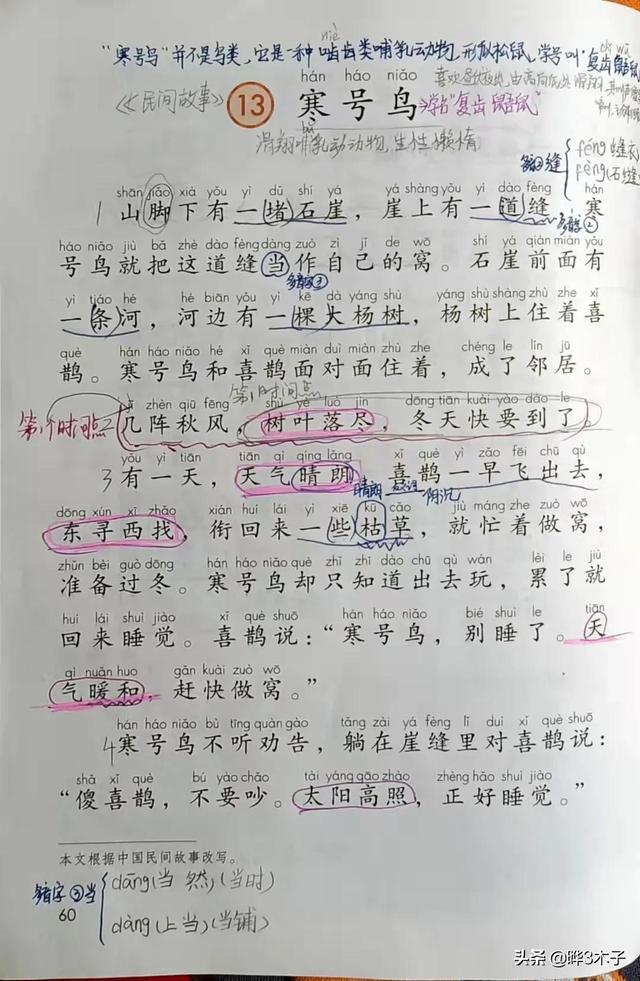 niè
"寒号鸟"并不是鸟类,它是一种啮齿类哺乳动物,形似松鼠,学名叫"复齿鼯鼠
《民间故事》
13
hán háo niǎo
寒号鸟
学名"复齿鼯鼠"
bǔ
滑翔哺乳动动物,生性懒惰
多音②缝
féng(缝衣
fèng(石缝
shān jiǎo xià yǒu yì dǔ shí yá yá shàng yǒu yí dào fèng hán
1山脚下有一堵石崖,崖上有一道缝,寒
多音②
háo niǎo jiù bǎ zhè dào fèng dàng zuò zì jǐ de wō shí yá qián miàn yǒu
号鸟就把这道缝当作自己的窝。石崖前面有
多音③
yì tiáo hé hé biān yǒu yì kē dà yáng shù yáng shù shàng zhù zhe xǐ
一条河,河边有一棵大杨树,杨树上住着喜
què hán háo niǎo hé xǐ què miàn duì miàn zhù zhe chéng le lín jū
鹊。寒号鸟和喜鹊面对面住着,成了邻居。
第1时间点
jǐ zhèn qiū fēng shù yè luò jìn dōng tiān kuài yào dào le
第1个时间点 2几阵秋风,树叶落尽,冬天快要到了。
yǒu yì tiān tiān qì qíng lǎng xǐ què yì zǎo fēi chū qù
3有一天,天气晴朗,喜鹊一早飞出去,
晴朗 反义词 阴沉
dōng xún xī zhǎo xián huí lái yì xiē kū cǎo jiù máng zhe zuò wō
东寻西找,衔回来一些枯草,就忙着做窝,
zhǔn bèi guò dōng hán háo niǎo què zhǐ zhī dào chū qù wán lèi le jiù
准备过冬。寒号鸟却只知道出去玩,累了就
huí lái shuì jiào xǐ què shuō hán háo niǎo bié shuì le tiān
回来睡觉。喜鹊说:“寒号鸟,别睡了。天
qì nuǎn huo gǎn kuài zuò wō
气暖和,赶快做窝。”
hán háo niǎo bù tīng quàn gào tǎng zài yá fèng lǐ duì xǐ què shuō
4寒号鸟不听劝告,躺在崖缝里对喜鹊说:
shǎ xǐ què bú yào chǎo tài yáng gāo zhào zhèng hǎo shuì jiào
“傻喜鹊,不要吵。太阳高照,正好睡觉。”
本文根据中国民间故事改写。
多音字③当
dāng(当然)(当时)
dàng(上当)(当铺)
60
头条 @晔3木子